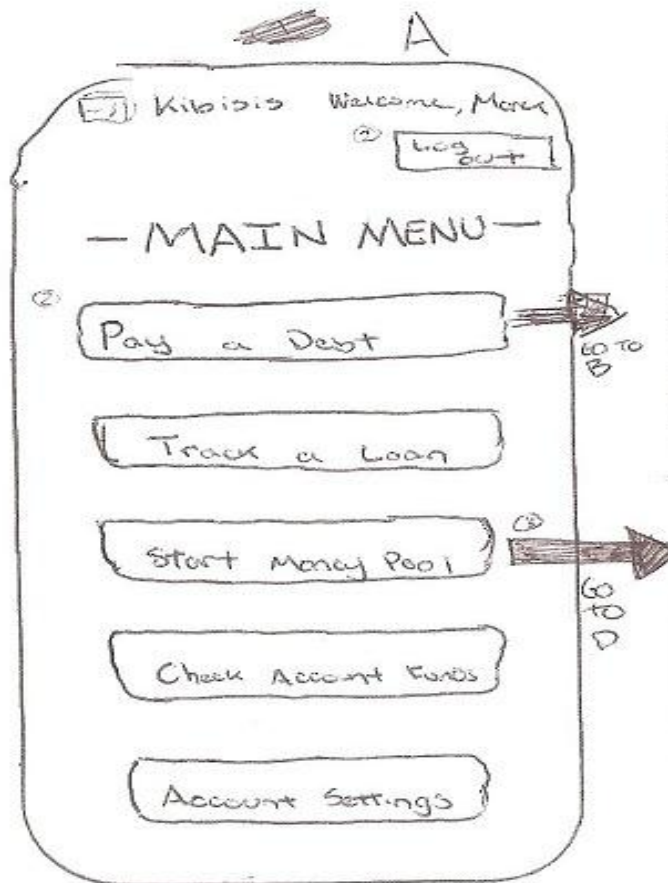 A
Kibisis Welcome, Marek
Log
out
- MAIN MENU -
② Pay a Debt
GO TO
B
Track a Loan
Start Money Pool
③
GO
TO
D
Check Account Funds
Account Settings